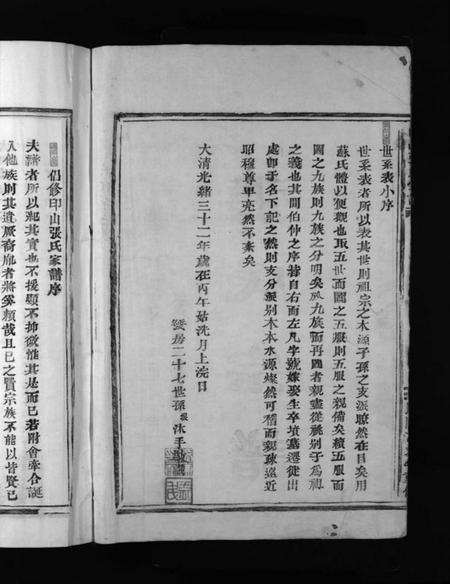 世系表小序
世系表者所以表其世則祖宗之本源子孫之支派瞭然在目矣用
蘇氏體以便觀也取五世而圖之五服則五服之親備矣積五服而
圖之九族則九族之分明矣於九族而再圖者親盡從別子為祖
之義也其間伯仲之序皆自右而左凡字號嫁娶生卒墳墓遷徙出
處即于名下記之然則支分派別木本水源燦然可稽而親疎遠近
昭穆尊卑亮然不紊矣
大清光緒三十二年歲在丙午姑洗月上浣日
二十七世孫 沐手敬譔
倡修印山張氏家譜序
夫譜者所以紀其實也不援顯不抑微惟其是而已若附會牽合誕
入他族則其遺厥裔龐者將奚賴哉且已之賢宗族不能以皆賢已